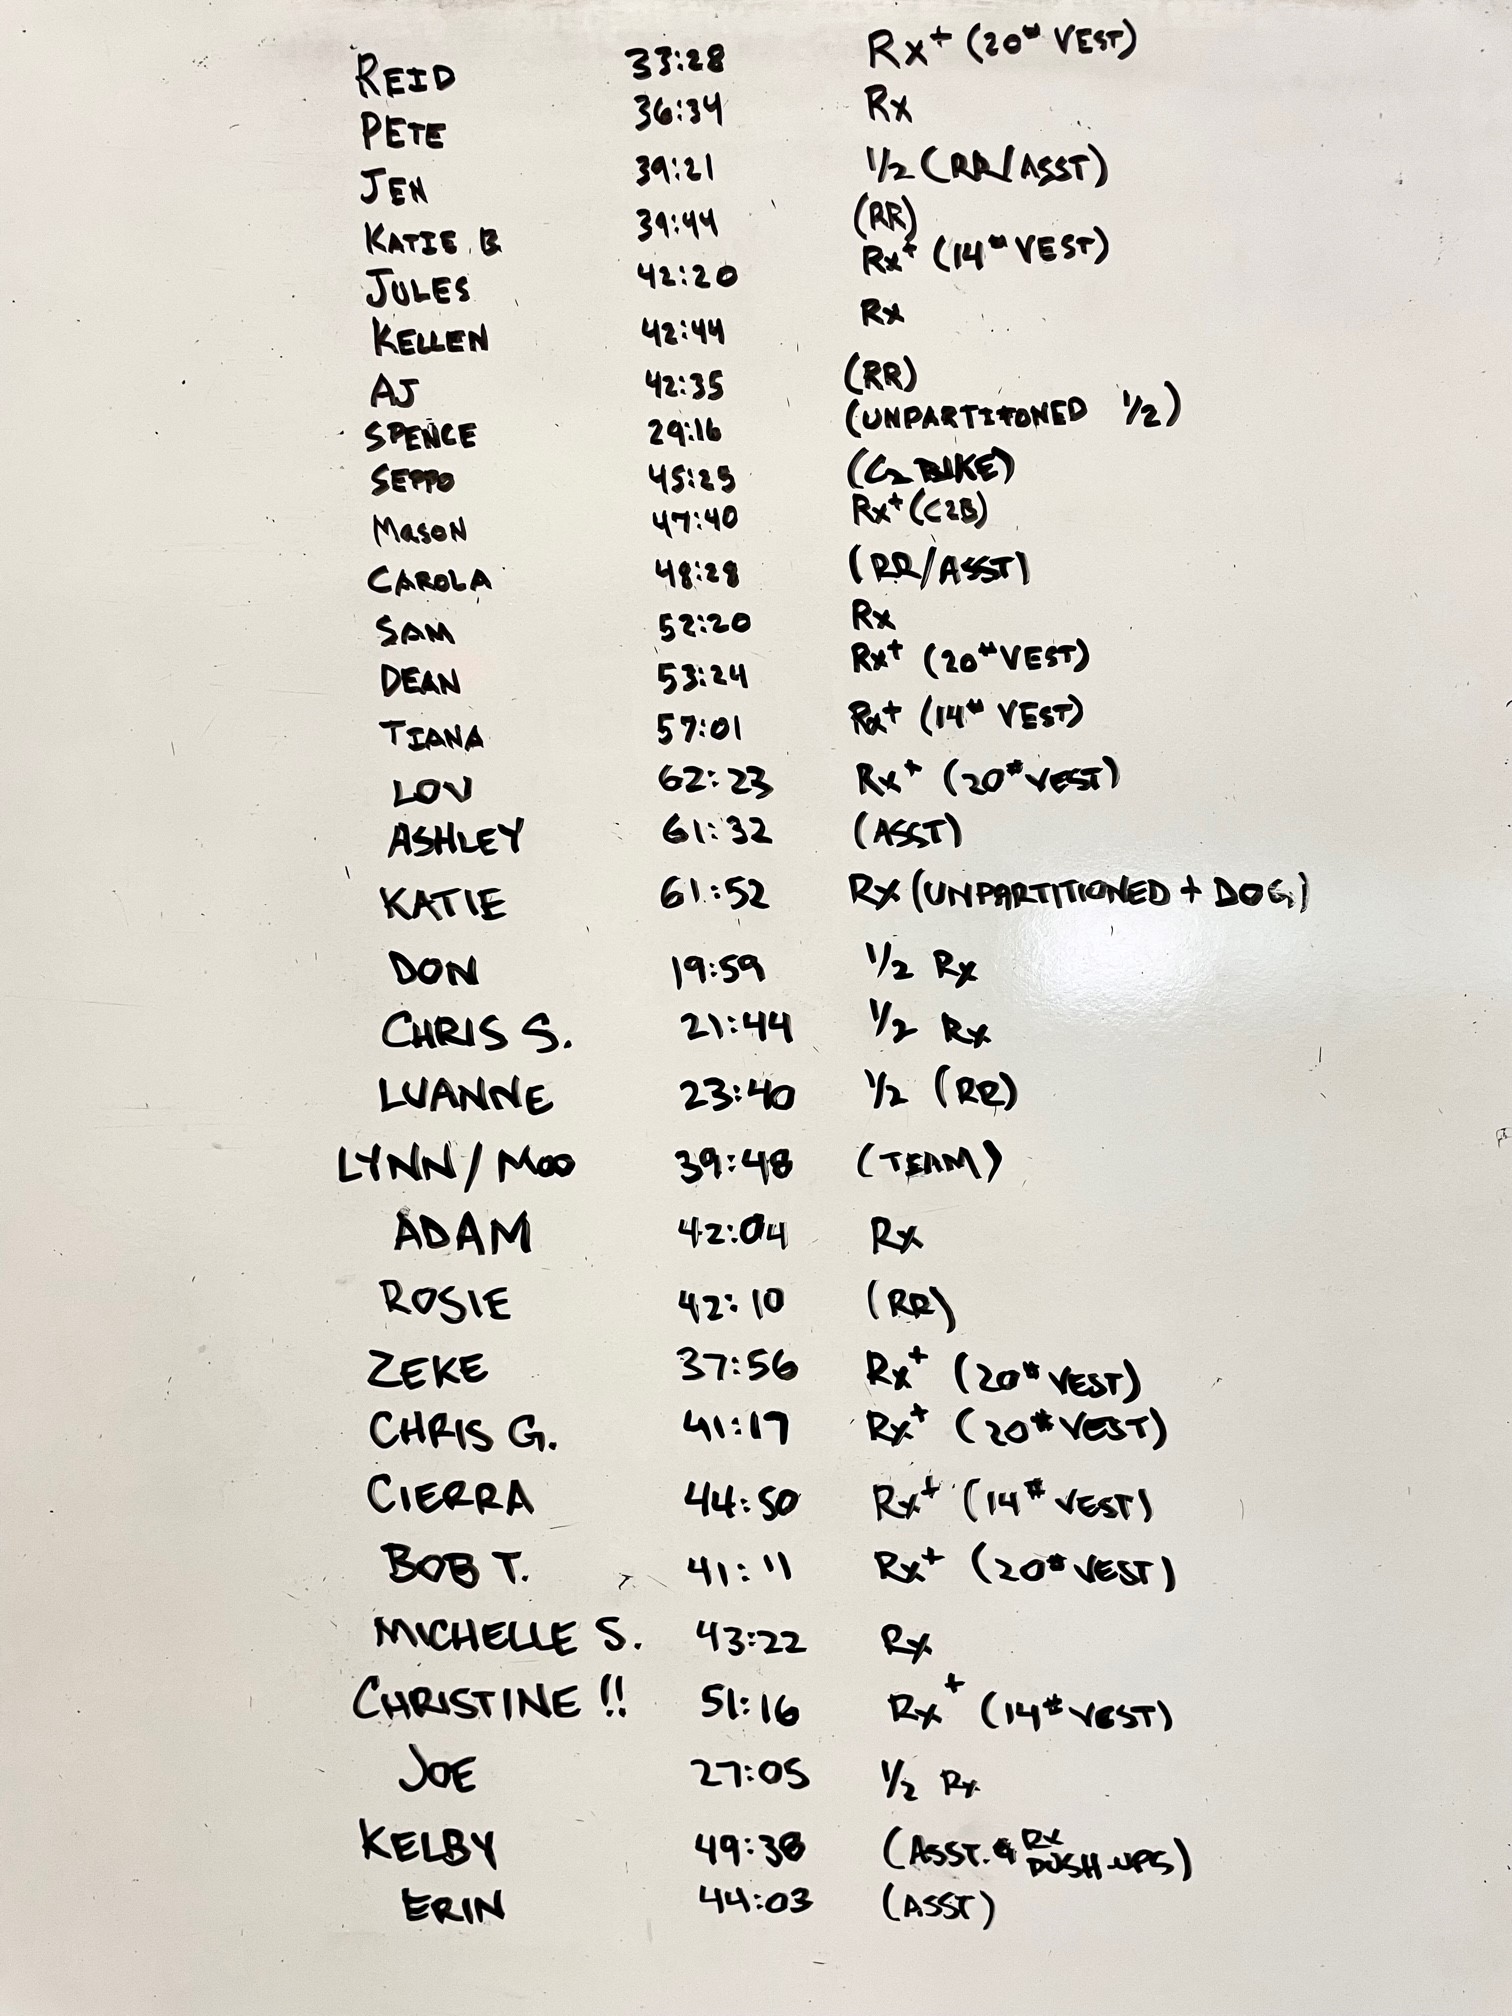 REID 33:28 Rx+ (20# VEST)
PETE 36:34 Rx
JEN 39:21 1/2 (RR/ASST)
KATIE B 39:44 (RR)
JULES 42:20 Rx+ (14# VEST)
KELLEN 42:44 Rx
AJ 42:35 (RR)
SPENCE 29:16 (UNPARTITONED 1/2)
SEPPO 45:25 (C2 BIKE)
MASON 47:40 Rx+ (C2B)
CAROLA 48:28 (RR/ASST)
SAM 52:20 Rx
DEAN 53:24 Rx+ (20# VEST)
TIANA 57:01 Rx+ (14# VEST)
LOU 62:23 Rx+ (20# VEST)
ASHLEY 61:32 (ASST)
KATIE 61:52 Rx (UNPARTITIONED + DOG)
DON 19:59 1/2 Rx
CHRIS S. 21:44 1/2 Rx
LUANNE 23:40 1/2 (RR)
LYNN/MOO 39:48 (TEAM)
ADAM 42:04 Rx
ROSIE 42:10 (RR)
ZEKE 37:56 Rx+ (20# VEST)
CHRIS G. 41:17 Rx+ (20# VEST)
CIERRA 44:50 Rx+ (14# VEST)
BOB T. 41:11 Rx+ (20# VEST)
MICHELLE S. 43:22 Rx
CHRISTINE !! 51:16 Rx+ (14# VEST)
JOE 27:05 1/2 Rx
KELBY 49:38 (ASST. & RX PUSH-UPS)
ERIN 44:03 (ASST)